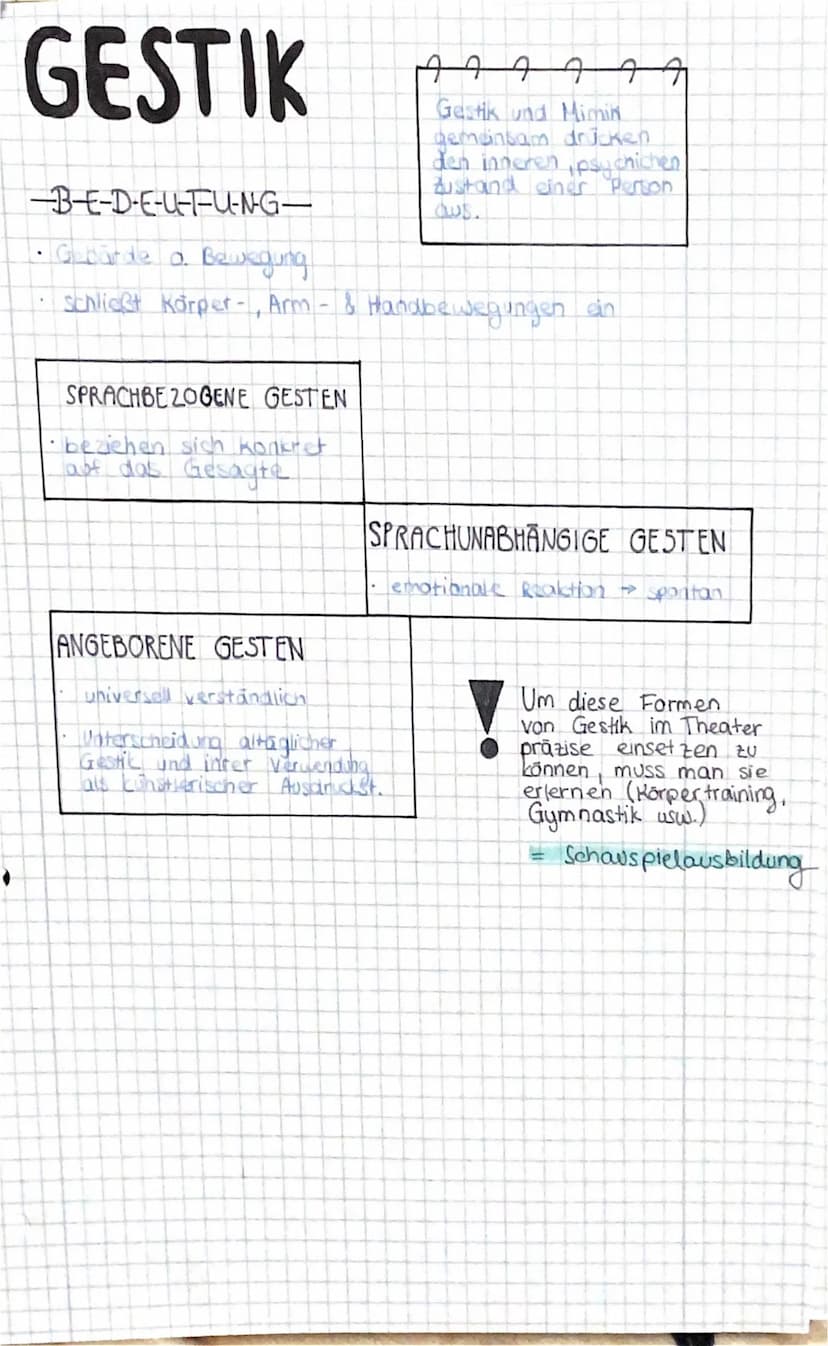 GESTIK
Gestik und Mimik
gemeinsam drücken
den inneren, psychichen
Zustand einer Person
aus.
B-E-D-E-U-T-U-N-G
· Gebärde o. Bewegung
· schließt Körper-, Arm- & Handbewegungen ein
SPRACHBEZOGENE GESTEN
· beziehen sich konkret
auf das Gesagte
SPRACHUNABHÄNGIGE GESTEN
· emotionale Reaktion → spontan
ANGEBORENE GESTEN
· universell verständlich
· Unterscheidung alltäglicher
Gestik und ihrer Verwendung
als künstlerischer Ausdruckst.
! Um diese Formen
von Gestik im Theater
präzise einsetzen zu
können, muss man sie
erlernen (Körpertraining,
Gymnastik usw.)
= Schauspielausbildung